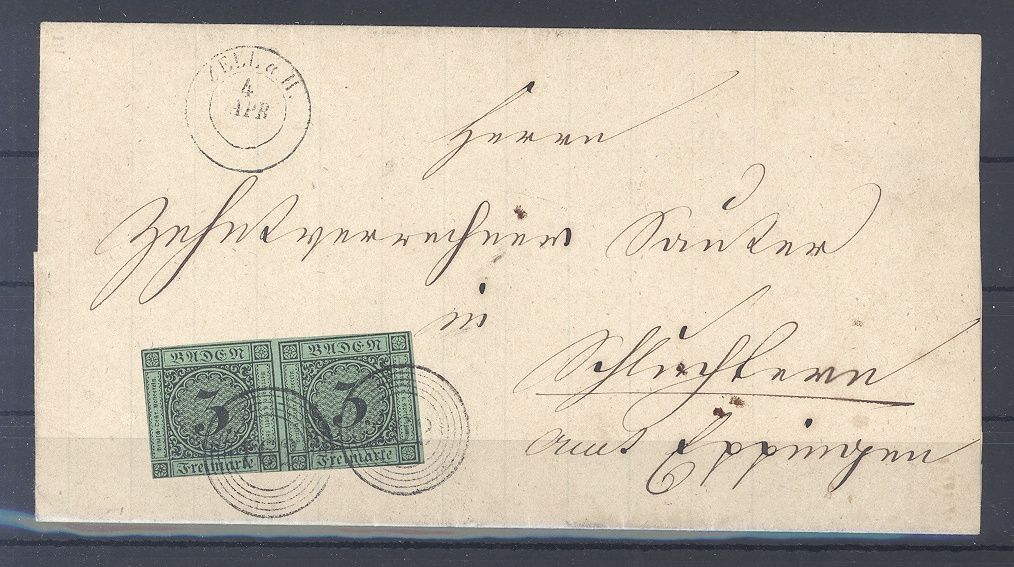 ZELL a H.
4
APR
Herrn
Zehntverrechner Sauter
in
Schluchtern
amt Eppingen
BADEN BADEN
3 3
Freimarke Freimarke